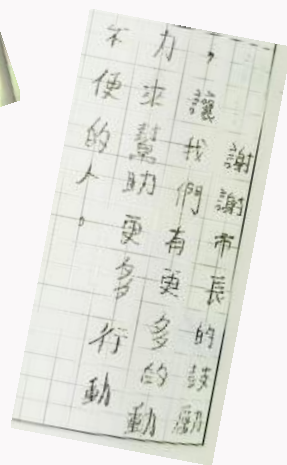 謝謝市長的鼓勵
，讓我們有更多的動
力來幫助更多行動
不便的人。